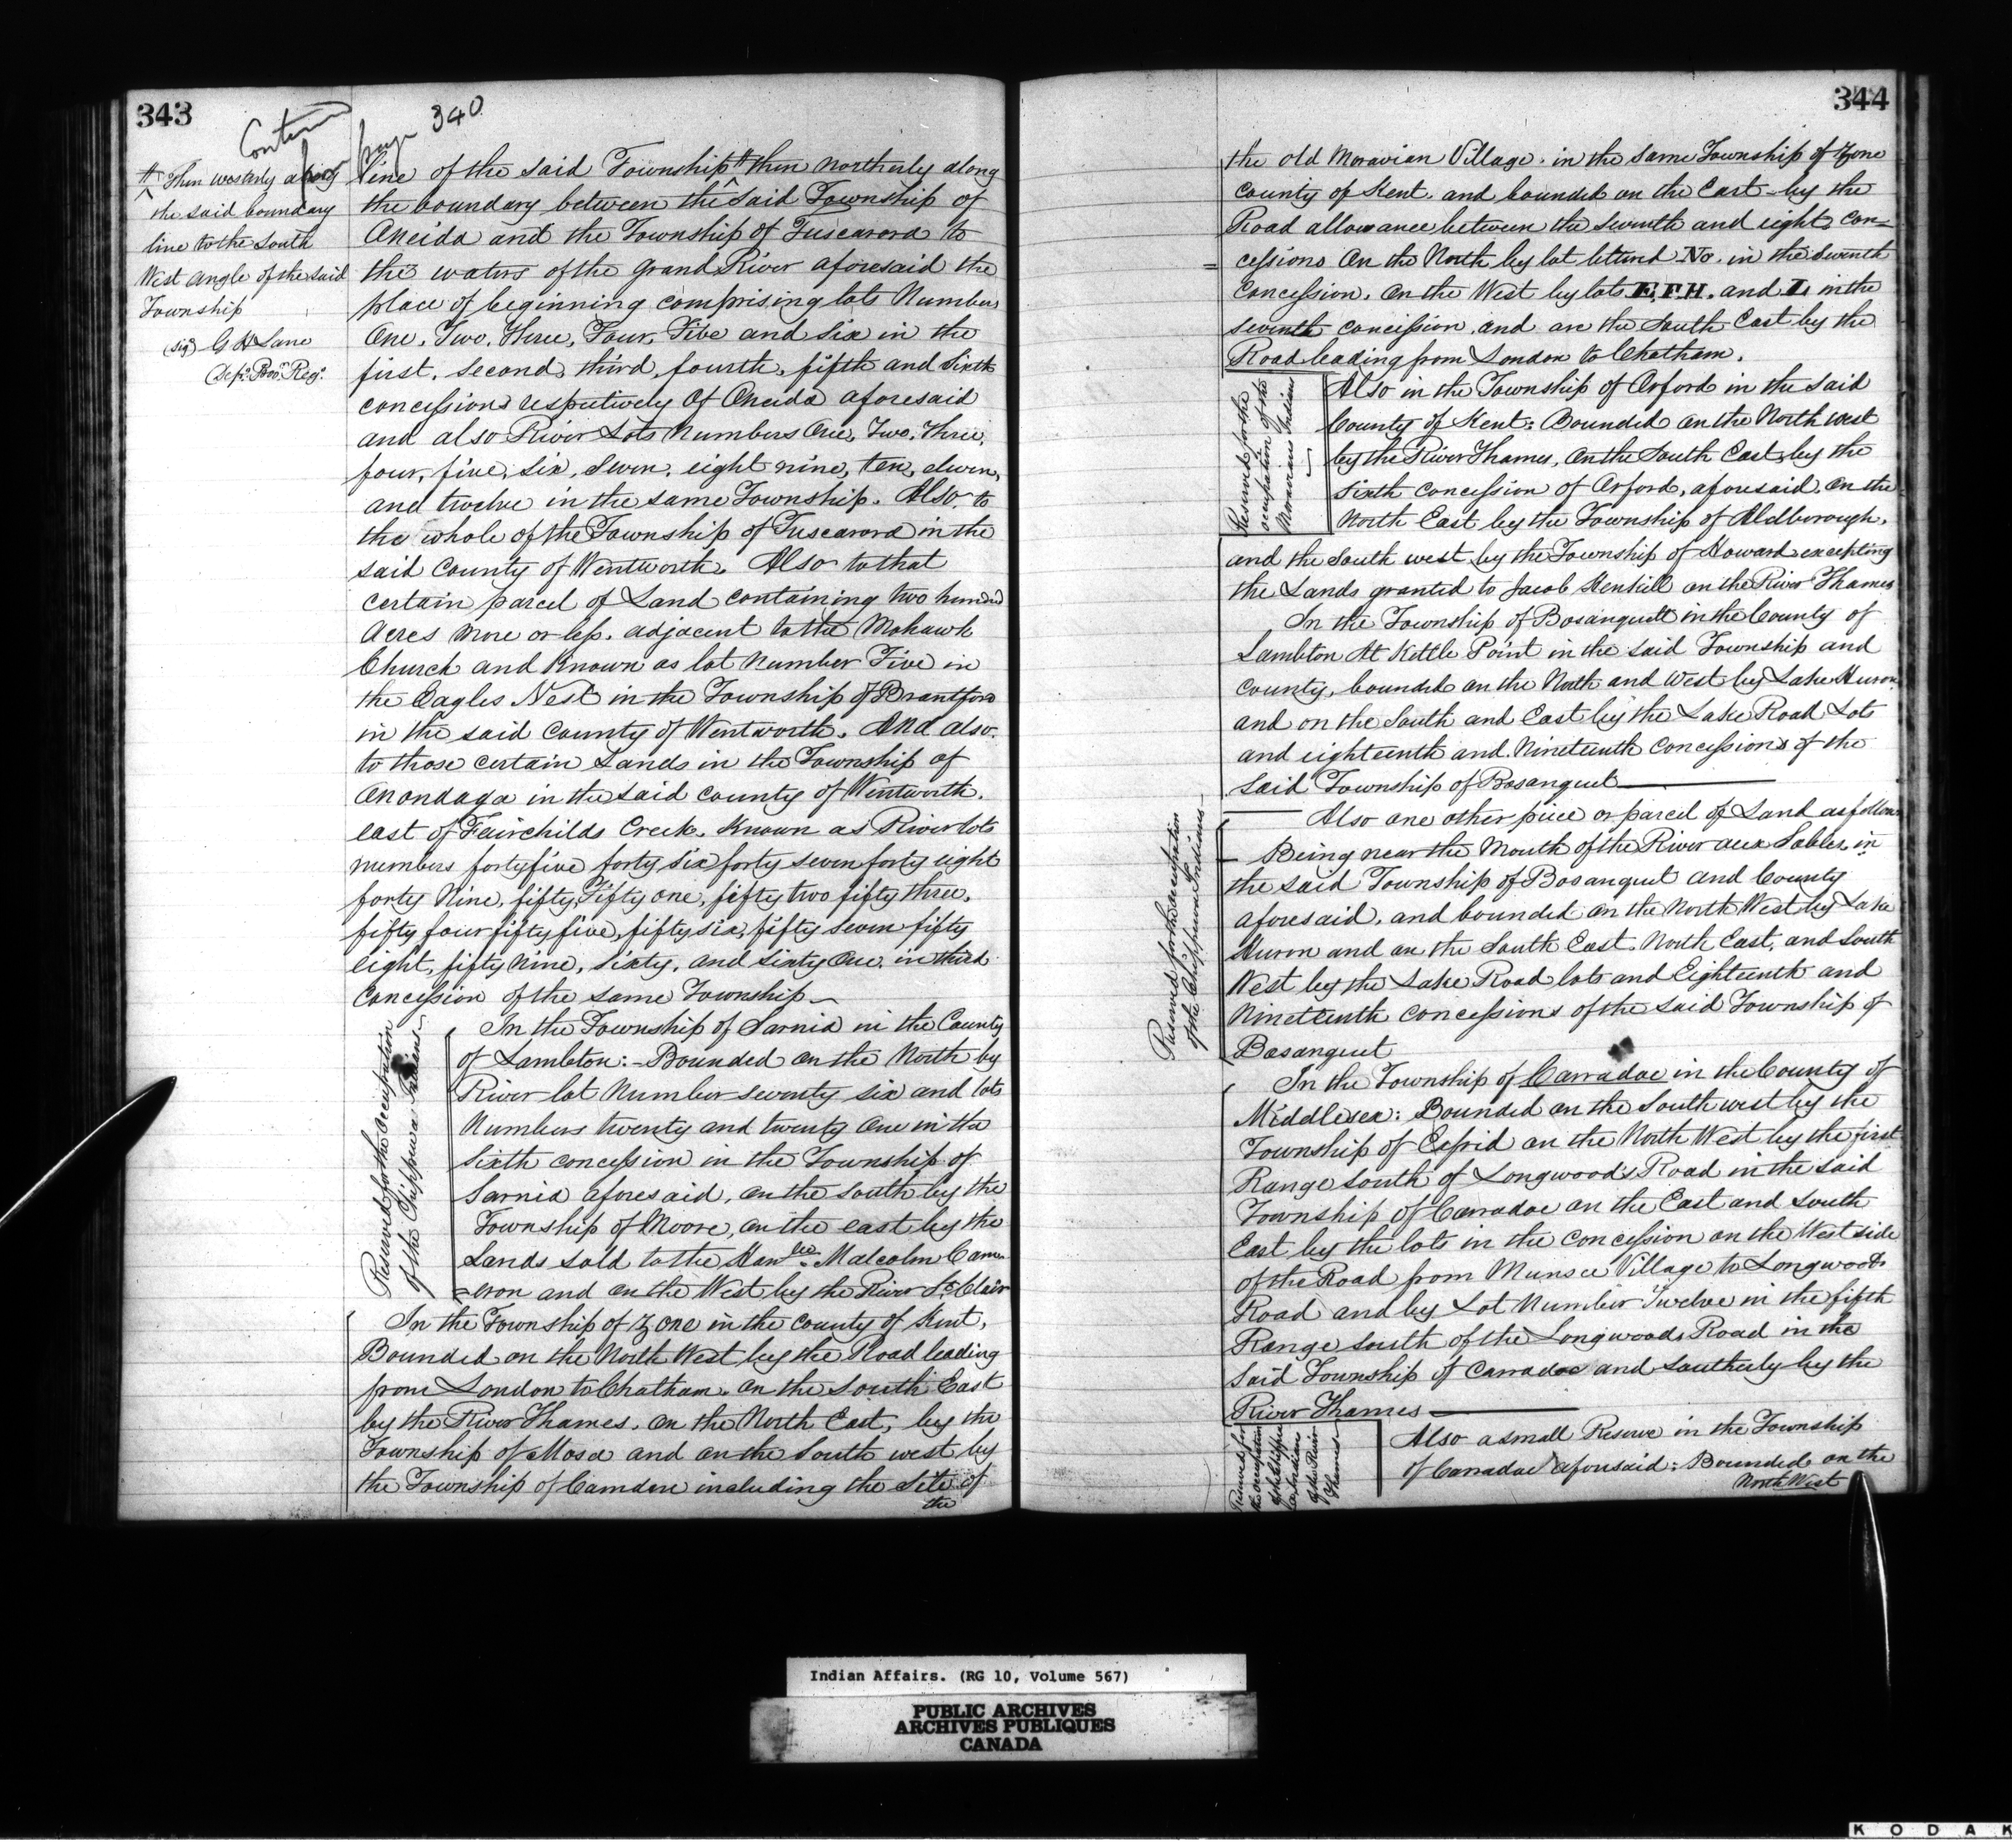 343
Contin from page 340
# Then westerly along
the said boundary
line to the South
West angle of the said
Township
(sigd) G H Lane
Depy. Provl. Regr.
line of the said Township # then Northerly along
the boundary between the said Township of
Oneida and the Township of Tuscarora to
the waters of the Grand River aforesaid the
place of beginning comprising lots Numbers
One, Two, Three, Four, Five and Six in the
first, second, third, fourth, fifth and Sixth
concessions respectively Of Oneida aforesaid
and also River Lots Numbers One, Two, Three,
four, five, six, seven, eight nine, ten, eleven,
and twelve in the same Township. Also, to
the whole of the Township of Tuscarora in the
said County of Wentworth. Also to that
certain parcel of Land containing two hundred
Acres more or less, adjacent to the Mohawk
Church and Known as lot Number Five in
the Eagles Nest in the Township of Brantford
in the said County of Wentworth. And also
to those certain Lands in the Township of
Onondaga in the said County of Wentworth.
east of Fairchilds Creek. Known as River lots
numbers forty five forty six forty seven forty eight
forty Nine, fifty, Fifty one, fifty two fifty three,
fifty four fifty five, fifty six, fifty seven fifty
eight, fifty nine, sixty, and sixty One, in third
Concession of the same Township
Reserved for the occupation
of the Chippewa Indians
In the Township of Sarnia in the County
of Lambton: - Bounded on the North by
River lot Number seventy six and lots
Numbers twenty and twenty One in the
sixth concession in the Township of
Sarnia aforesaid, on the South by the
Township of Moore, on the east by the
Lands sold to the Honble. Malcolm Cam
=eron and on the West by the River St. Clair
In the Township of Zone in the County of Kent,
Bounded on the North West by the Road leading
from London to Chatham. on the South East
by the River Thames, on the North East, by the
Township of Mosa and on the South west by
the Township of Camden including the Site of
the
344
the old Moravian Village. in the same Township of Zone
County of Kent. and bounded on the East by the
Road allowance between the seventh and eight con=
=cessions On the North by lot lettered No. in the seventh
Concession. On the West by lots E, F, H. and I, in the
seventh concession, and on the South East by the
Road leading from London to Chatham.
Reserved for the
occupation of the
Moravians Indian
Also in the Township of Orford in the said
County of Kent: Bounded on the North west
by the River Thames, On the South East, by the
Sixth Concession of Orford, aforesaid. On the
North East by the Township of Aldborough,
and the South west by the Township of Howard excepting
the Lands granted to Jacob Kenhill on the River Thames
In the Township of Bosanquett in the County of
Lambton At Kettle Point in the said Township and
County, bounded on the North and West by Lake Huron
and on the South and East by the Lake Road Lots
and eighteenth and Nineteenth Concessions of the
Said Township of Bosanquet
Reserved for the occupation
of the Chippewa Indians
Also one other piece or parcel of Land as follows
Being near the Mouth of the River aux Sables, in
the said Township of Bosanquet and County
aforesaid, and bounded on the North West by Lake
Huron and on the South East, North East, and South
West by the Lake Road lots and Eighteenth and
Nineteenth Concessions of the said Township of
Bosanquet
In the Township of Carradoc in the County of
Middlesex: Bounded on the South west by the
Township of Ecfrid on the North West by the first
Range South of Longwoods Road in the said
Township of Carradoc on the East and South
East by the lots in the Concession on the West side
of the Road from Munsee Village to Longwoods
Road and by Lot Number Twelve in the fifth
Range south of the Longwoods Road in the
Said Township of Carradoc and Southerly by the
River Thames
Reserved for
the occupation
of the Chippe-
wa Indians
of the River
Thames
Also a small Reserve in the Township
of Carradoc aforesaid: Bounded on the
North West
Indian Affairs. (RG 10, Volume 567)
PUBLIC ARCHIVES
ARCHIVES PUBLIQUES
CANADA
KODAK